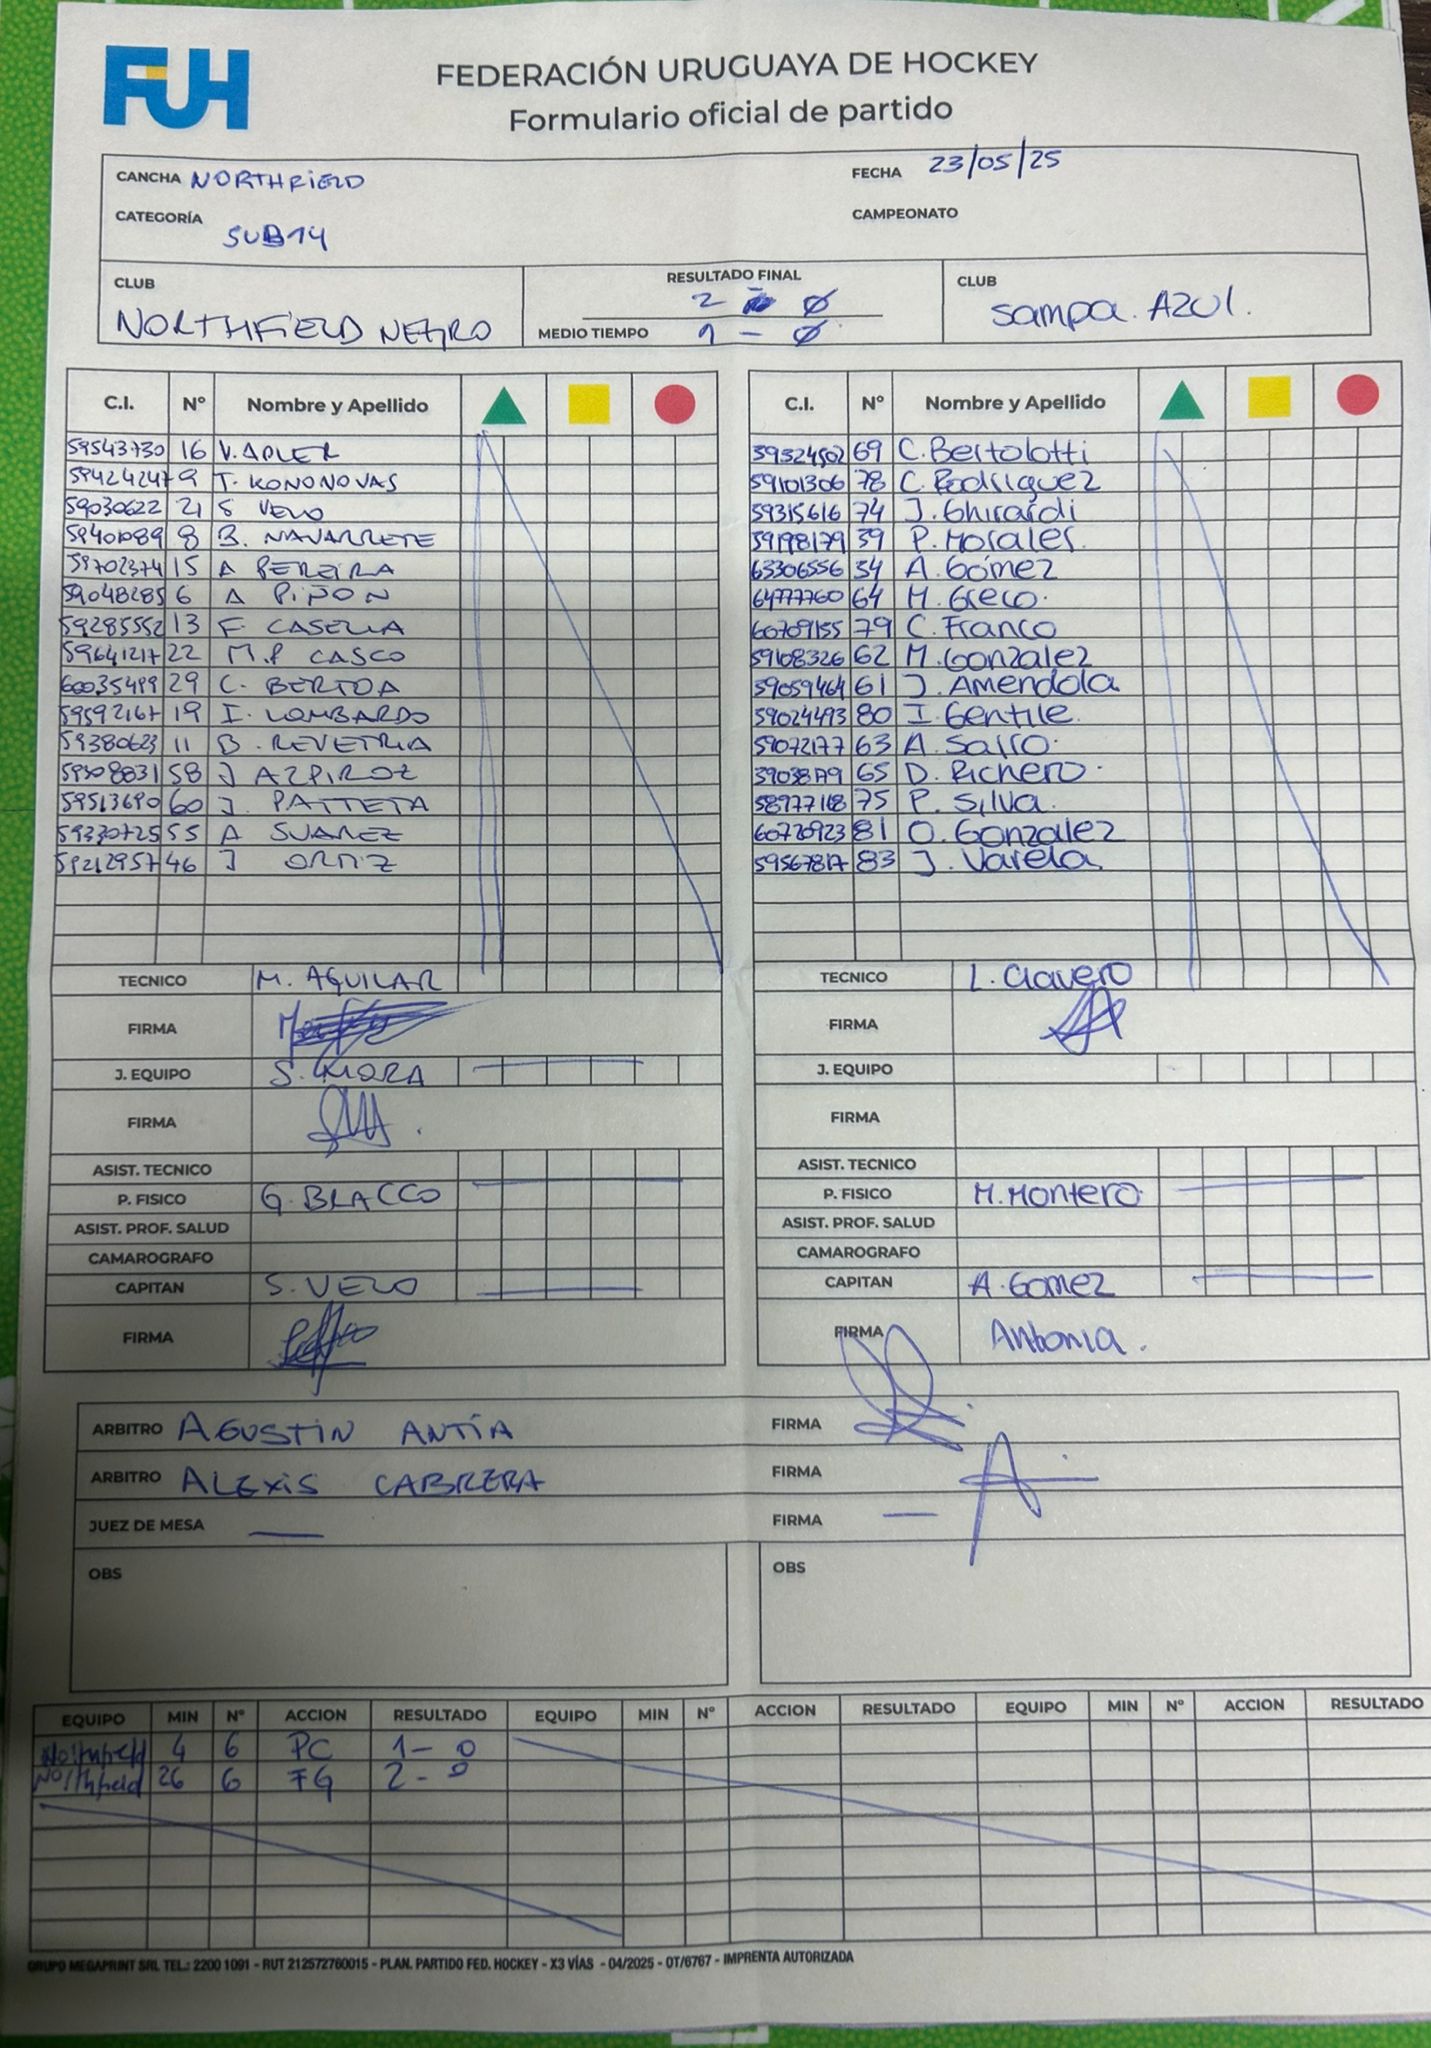 FUH
FEDERACIÓN URUGUAYA DE HOCKEY
Formulario oficial de partido
CANCHA NORTHFIELD
FECHA 23/05/25
CATEGORÍA SUB14
CAMPEONATO
CLUB NORTHFIELD NEGRO
RESULTADO FINAL 2 - 0
MEDIO TIEMPO 1 - 0
CLUB Sampa. AZUL.
C.I. N° Nombre y Apellido
59543730 16 V. ADLER
59424247 9 T. KONONOVAS
59030622 21 S VEVO
59401089 8 B. NAVARRETE
59702374 15 A PEREIRA
59048285 6 A PIÑON
59285552 13 F. CASELLA
59641217 22 M.P CASCO
60035499 29 C. BERTOA
59592167 19 I. LOMBARDO
59380623 11 B. REVETRIA
59308831 58 J AZPIROZ
59513690 60 J. PATTETA
59330725 55 A SUAREZ
59212957 46 J ORTIZ
TECNICO M. AGUILAR
FIRMA
J. EQUIPO S. MORA
FIRMA
ASIST. TECNICO
P. FISICO G. BLACCO
ASIST. PROF. SALUD
CAMAROGRAFO
CAPITAN S. VEVO
FIRMA
C.I. N° Nombre y Apellido
59324502 69 C. Bertolotti
59101306 78 C. Rodriguez
59315616 74 J. Ghirardi
59198179 59 P. Morales.
63306556 54 A. Gómez
64777760 64 M. Greco.
60709155 79 C. Franco
59108326 62 M. Gonzalez
59059464 61 J. Amendola
59024493 80 I. Gentile.
59072177 63 A. Sarro.
65 D. Richero.
58977118 75 P. Silva.
60720923 81 O. Gonzalez
59567817 83 J. Varela.
TECNICO L. Clavero
FIRMA
J. EQUIPO
FIRMA
ASIST. TECNICO
P. FISICO M. Montero.
ASIST. PROF. SALUD
CAMAROGRAFO
CAPITAN A. Gomez
FIRMA Antonia.
ARBITRO AGUSTIN ANTÍA FIRMA
ARBITRO ALEXIS CABRERA FIRMA
JUEZ DE MESA — FIRMA —
OBS OBS
EQUIPO MIN N° ACCION RESULTADO EQUIPO MIN N° ACCION RESULTADO EQUIPO MIN N° ACCION RESULTADO
Northfield 4 6 PC 1-0
Northfield 26 6 FG 2-0
GRUPO MEGAPRINT SRL TEL.: 2200 1091 - RUT 212572760015 - PLAN. PARTIDO FED. HOCKEY - X3 VÍAS - 04/2025 - OT/6767 - IMPRENTA AUTORIZADA